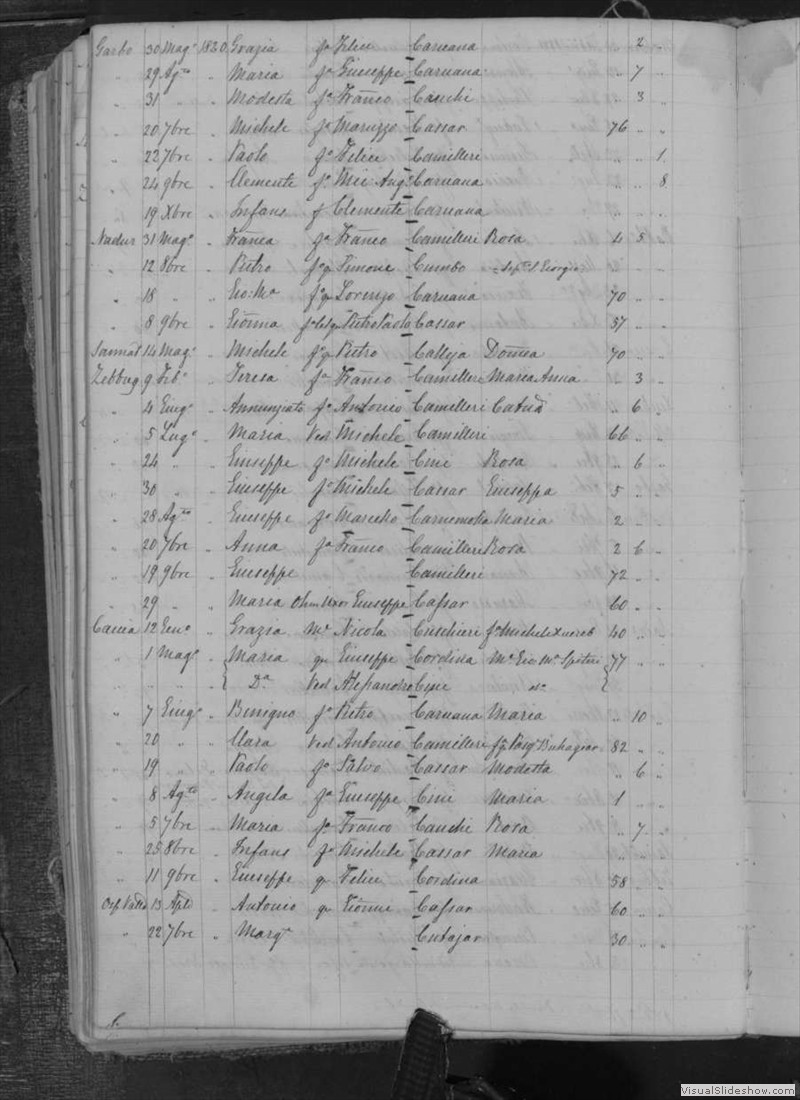 Garbo 30 Mag.o 1820 Grazia fa Felice Caruana " 2 "
" 29 Ag.to " Maria fa Giuseppe Caruana " 7 "
" 31 " " Modesta fa Franco Cauchi " 3 "
" 20 7bre " Michele fo Maruzzo Cassar 76 " "
" 22 7bre " Paolo fo Felice Camilleri " " 1
" 24 9bre " Clemente fo Mic Ang.o Caruana " " 8
" 19 Xbre " Infans f Clemente Caruana " " "
Nadur 31 Mag.o " Franca fa Franco Camilleri Rosa 4 5 "
" 12 8bre " Pietro fo q Simone Cumbo
" 18 " " Gio: Ma fo q Lorenzo Caruana 70 " "
" 8 9bre " Pietro Paolo Cassar 37 " "
Sannat 14 Mag.o " Michele fo q Pietro Calleja 70 " "
Zebbug 9 Feb.o " Teresa fa Franco Camilleri Maria Anna " 3 "
" 4 Giug.o " Annunziata fa Antonio Camilleri " 6 "
" 5 Lug.o " Maria Ved Michele Camilleri 66 " "
" 24 " " Giuseppe fo Michele Cini Rosa " 6 "
" 30 " " Giuseppe fo Michele Cassar Giuseppa 5 " "
" 28 Ag.to " Giuseppe fo Maria 2 " "
" 20 7bre " Anna fa Franco Camilleri Rosa 2 6 "
" 19 9bre " Giuseppe Camilleri 72 " "
" 29 " " Maria Giuseppe Cassar 60 " "
Caccia 12 Gen.o " Grazia Me Nicola Cuschieri fa Michele Xuereb 40 " "
" 1 Mag.o " Maria qm Giuseppe Cordina Me Gio Ma Spiteri 77 " "
" " " " { Da Ved Alessandro do }
" 7 Giug.o " Benigno fo Pietro Caruana Maria " 10 "
" 20 " " Clara Ved Antonio Camilleri Buhagiar 82 " "
" 19 " " Paolo fo Salvo Cassar Modesta " 6 "
" 8 Ag.to " Angela fa Giuseppe Cini Maria 1 " "
" 5 7bre " Maria fa Franco Cauchi Rosa " 7 "
" 25 8bre " Infans fo Michele Cassar Maria "
" 11 9bre " Giuseppe qm Felice Cordina 58 " "
13 " Antonio qm Cassar 60 " "
" 22 7bre " Marg.a Cutajar 30 " "
VisualSlideshow.com